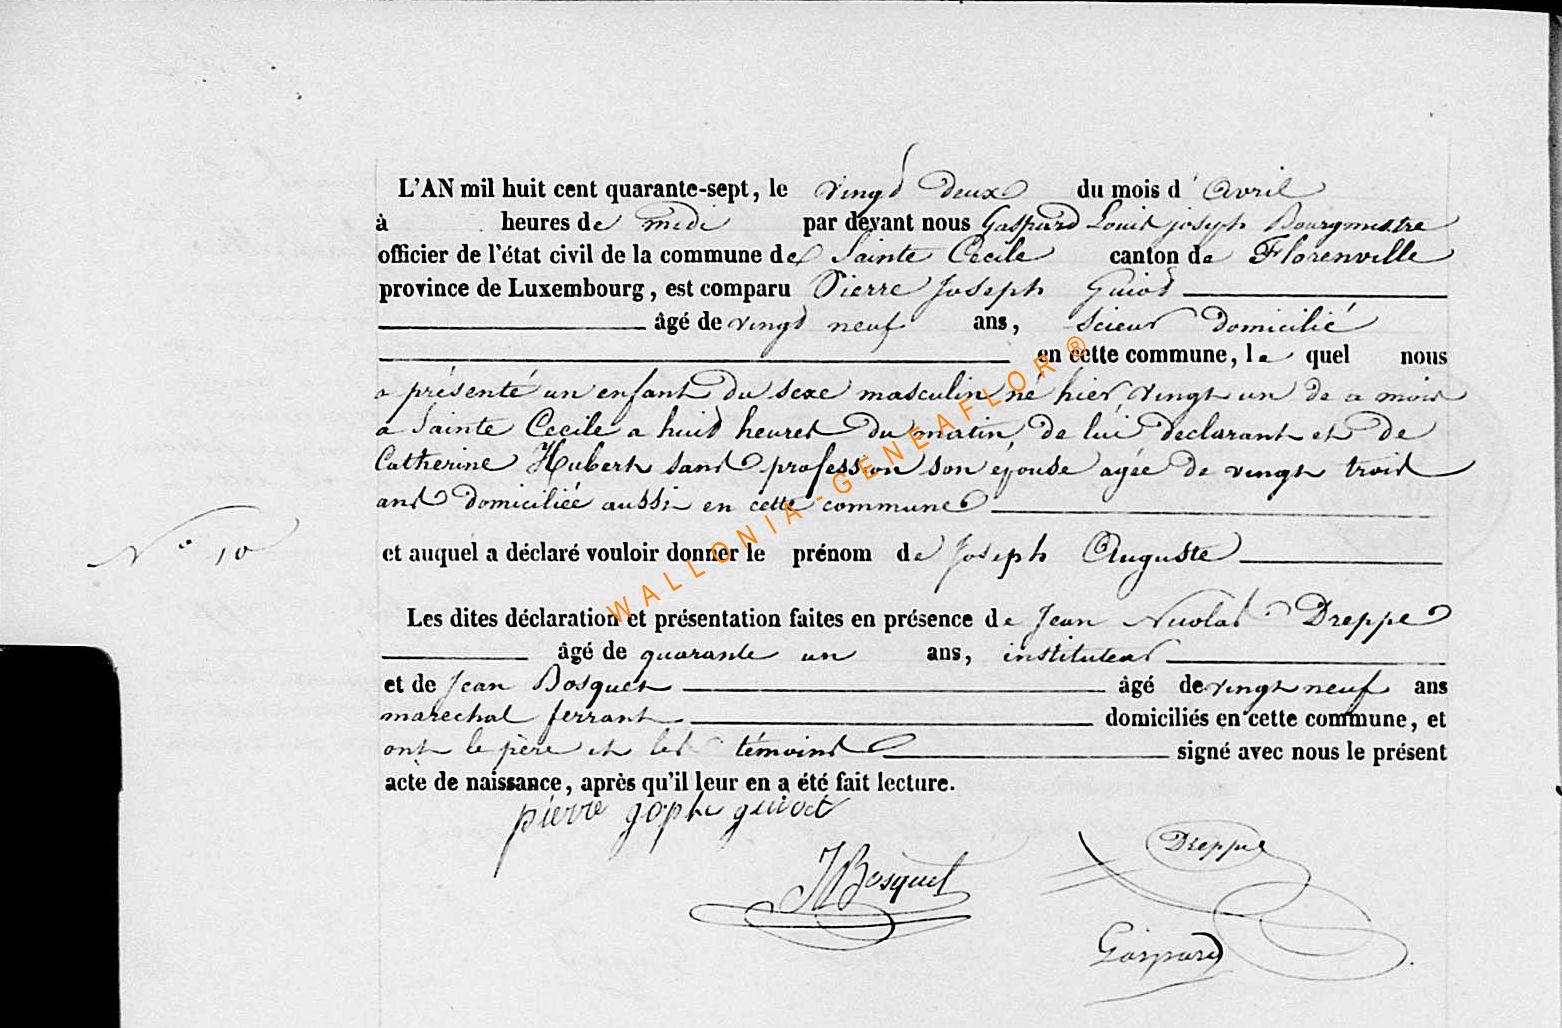 L'AN mil huit cent quarante-sept, le vingt deux du mois d' Avril
à heures de midi par devant nous Gaspard Louis joseph Bourgmestre
officier de l'état civil de la commune de Sainte Cecile canton de Florenville
province de Luxembourg, est comparu Pierre Joseph Guiot
âgé de vingt neuf ans, scieur domicilié
en cette commune, le quel nous
a présenté un enfant du sexe masculin né hier vingt un de ce mois
a Sainte Cecile a huit heures du matin de lui declarant et de
Catherine Hubert sans profession son épouse agée de vingt trois
ans domiciliée aussi en cette commune
N° 10
et auquel a déclaré vouloir donner le prénom de Joseph Auguste
Les dites déclaration et présentation faites en présence de Jean Nicolas Dreppe
âgé de quarante un ans, instituteur
et de Jean Bosquet âgé de vingt neuf ans
marechal ferrant domiciliés en cette commune, et
ont le père et les témoins signé avec nous le présent
acte de naissance, après qu'il leur en a été fait lecture.
pierre goph guiot
JBosquet
Dreppe
Gaspard
WALLONIA-GENEAFLOR®